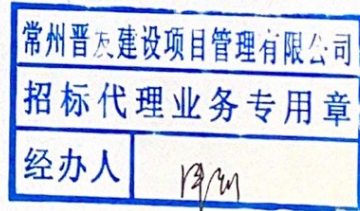 常州晋友建设项目管理有限公司
招标代理业务专用章
经办人